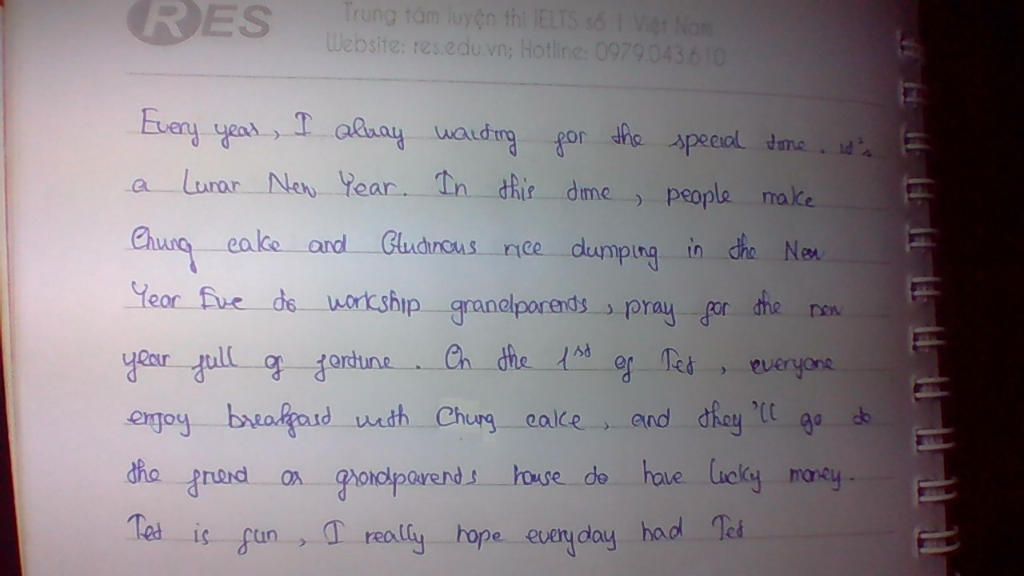 RES
Trung tâm luyện thi IELTS số 1 Việt Nam
Website: res.edu.vn; Hotline: 0979.043.610
Every year, I alway waiting for the special time. it's
a Lunar New Year. In this time, people make
Chung cake and Glutinous rice dumping in the New
Year Eve to workship grandparents, pray for the new
year full of fortune. On the 1st of Tet, everyone
enjoy breakfast with Chung cake, and they'll go to
the friend or grandparents house to have lucky money.
Tet is fun, I really hope everyday had Tet